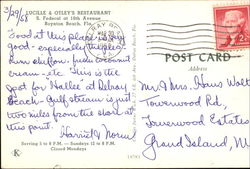 3/29/68
LUCILLE & OTLEY'S RESTAURANT
S. Federal at 10th Avenue
Boynton Beach, Fla.
Food at this place is
good - especially the pies
Rum chiffon, fresh coconut
cream - etc. This is the
spot for at Delray
Beach - Gulf stream is just
two miles from the shore at
this point.
Harriet & Norm
Serving 5 to 8 P.M. - Sundays 12 to 8 P.M.
Closed Mondays
K
POST CARD
Address
Mr & Mrs. Hans Wolt
Towerwood Rd,
Towerwood Estates
Grand Island, N